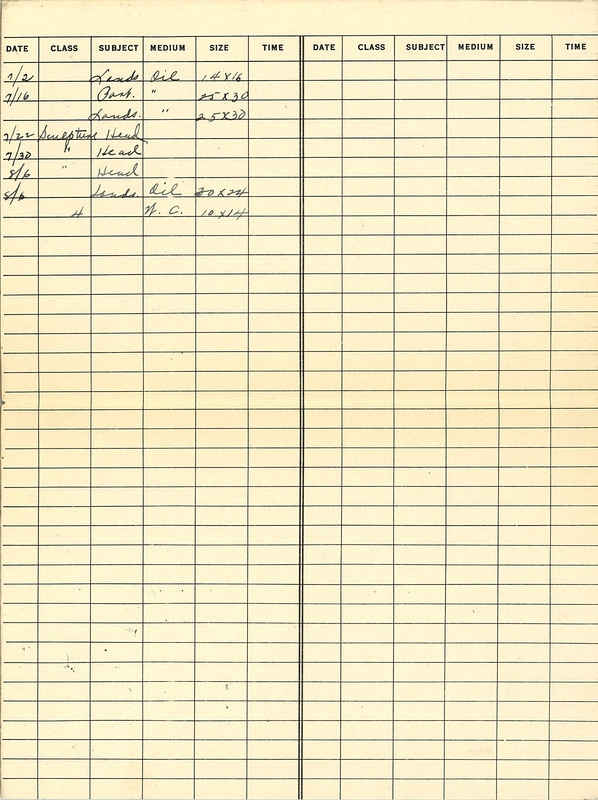 DATE CLASS SUBJECT MEDIUM SIZE TIME DATE CLASS SUBJECT MEDIUM SIZE TIME
7/2 Lands Oil 14 x 16
7/16 Port. " 25 x 30
Lands. " 25 x 30
7/22 Sculpture Head
7/30 " Head
8/6 " Head
8/6 Lands. Oil 20 x 24
4 W. C. 10 x 14